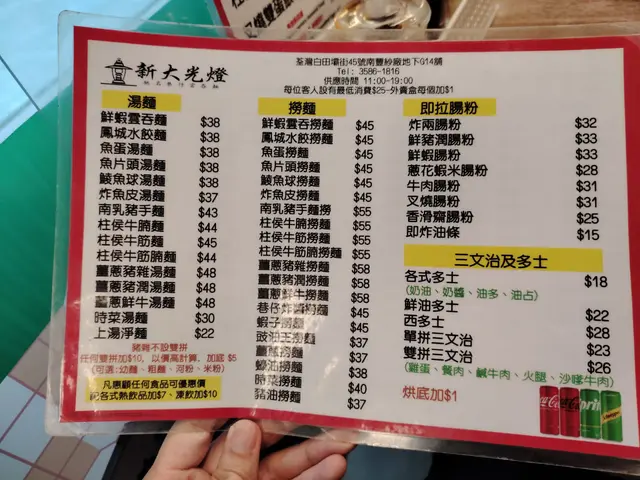 新大光燈
荃灣白田壩街45號南豐紗廠地下G14舖
Tel: 3586-1816
供應時間 11:00-19:00
每位客人設有最低消費$25-外賣盒每個加$1
湯麵
鮮蝦雲吞麵 $38
鳳城水餃麵 $38
魚蛋湯麵 $38
魚片頭湯麵 $38
鯪魚球湯麵 $38
炸魚皮湯麵 $37
南乳豬手麵 $43
柱侯牛腩麵 $44
柱侯牛筋麵 $45
柱侯牛筋腩麵 $44
薑蔥豬雜湯麵 $48
薑蔥豬潤湯麵 $48
薑蔥鮮牛湯麵 $48
時菜湯麵 $30
上湯淨麵 $22
豬雜不設雙拼
任何雙拼加$10，以價高計算，加底 $5
(可選:幼麵、粗麵、河粉、米粉)
凡惠顧任何食品可優惠價
配各式熱飲品加$7、凍飲加$10
撈麵
鮮蝦雲吞撈麵 $45
鳳城水餃撈麵 $45
魚蛋撈麵 $45
魚片頭撈麵 $45
鯪魚球撈麵 $45
炸魚皮撈麵 $45
南乳豬手麵撈 $55
柱侯牛腩撈麵 $55
柱侯牛筋撈麵 $55
柱侯牛筋腩撈麵 $55
薑蔥豬雜撈麵 $58
薑蔥豬潤撈麵 $58
薑蔥鮮牛撈麵 $58
巷仔炸醬撈麵 $45
蝦子撈麵 $45
豉油王撈麵 $37
薑蔥撈麵 $37
蠔油撈麵 $38
時菜撈麵 $40
豬油撈麵 $37
即拉腸粉
炸兩腸粉 $32
鮮豬潤腸粉 $33
鮮蝦腸粉 $33
蔥花蝦米腸粉 $28
牛肉腸粉 $31
叉燒腸粉 $31
香滑齋腸粉 $25
即炸油條 $15
三文治及多士
各式多士 $18
(奶油、奶醬、油多、油占)
鮮油多士 $22
西多士 $28
單拼三文治 $23
雙拼三文治 $26
(雞蛋、餐肉、鹹牛肉、火腿、沙嗲牛肉)
烘底加$1